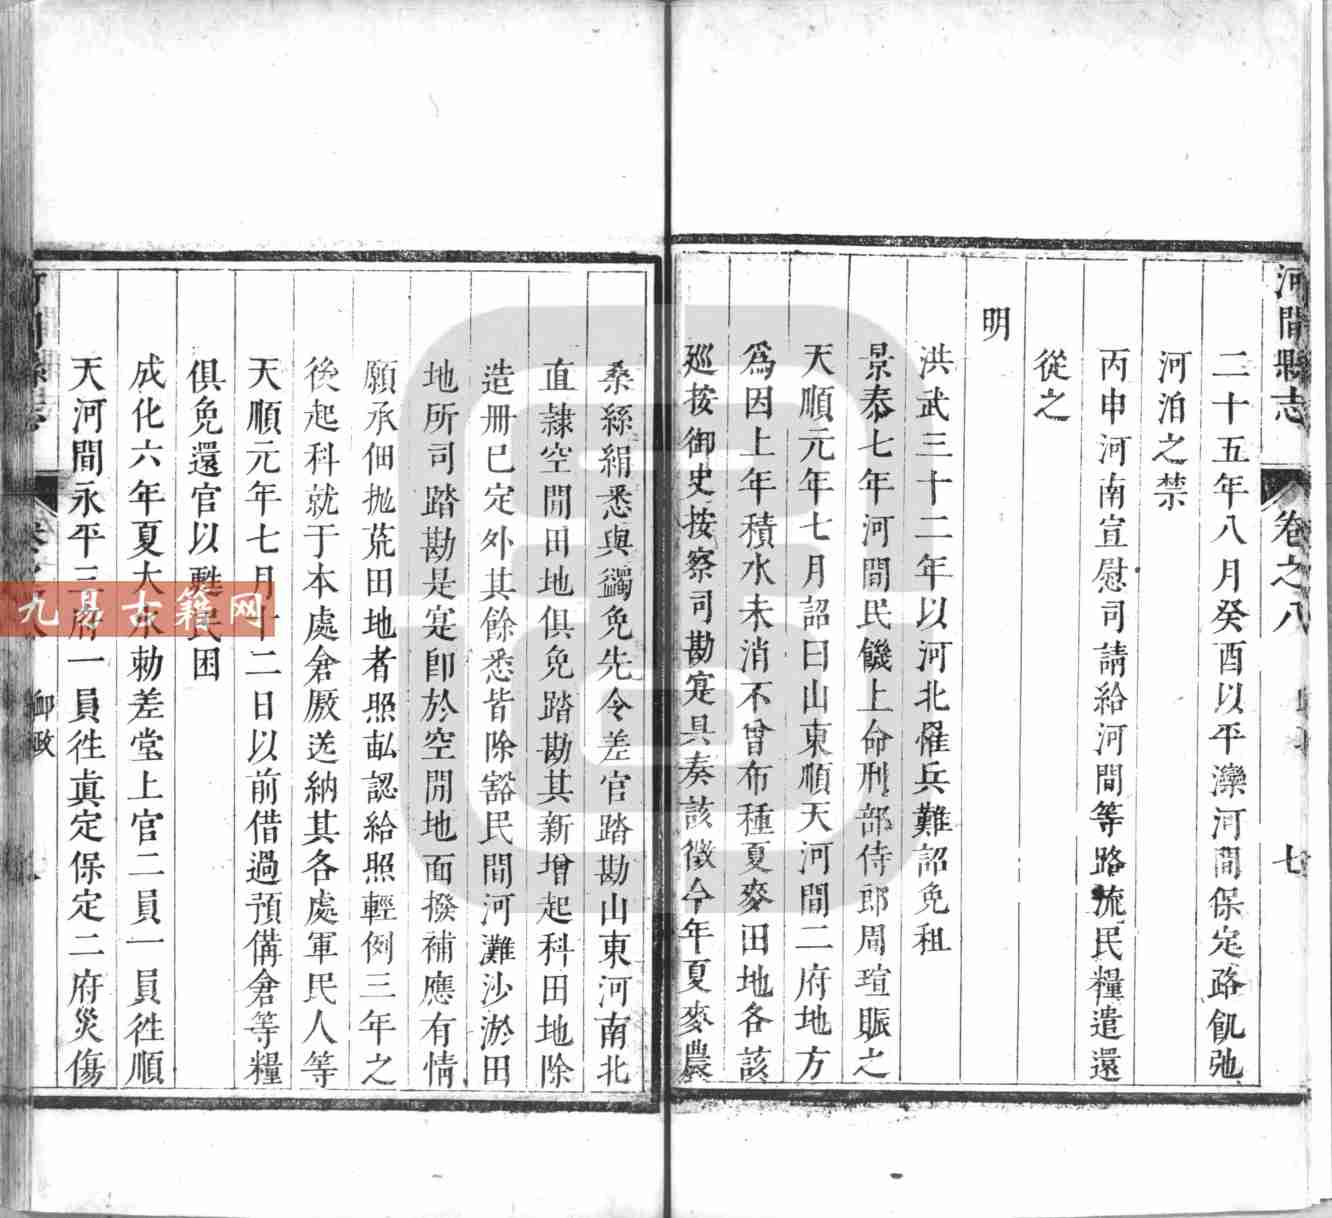 河間縣志
卷之八
七
二十五年八月癸酉以平灤河間保定路飢弛
河泊之禁
丙申河南宣慰司請給河間等路流民糧遣還
從之
明
洪武三十二年以河北罹兵難詔免租
景泰七年河間民饑上命刑部侍郎周瑄賑之
天順元年七月詔曰山東順天河間二府地方
爲因上年積水未消不曾布種夏麥田地各該
廵按御史按察司勘寔具奏該徵今年夏麥農
桑絲絹悉與蠲免先令差官踏勘山東河南北
直隷空閒田地俱免踏勘其新增起科田地除
造册已定外其餘悉皆除豁民間河灘沙淤田
地所司踏勘是寔卽於空閒地面撥補應有情
願承佃抛荒田地者照畝認給照輕例三年之
後起科就于本處倉厫送納其各處軍民人等
天順元年七月十二日以前借過預備倉等糧
俱免還官以甦民困
成化六年夏大水勅差堂上官二員一員徃順
天河間永平三府一員徃眞定保定二府災傷
九易古籍网